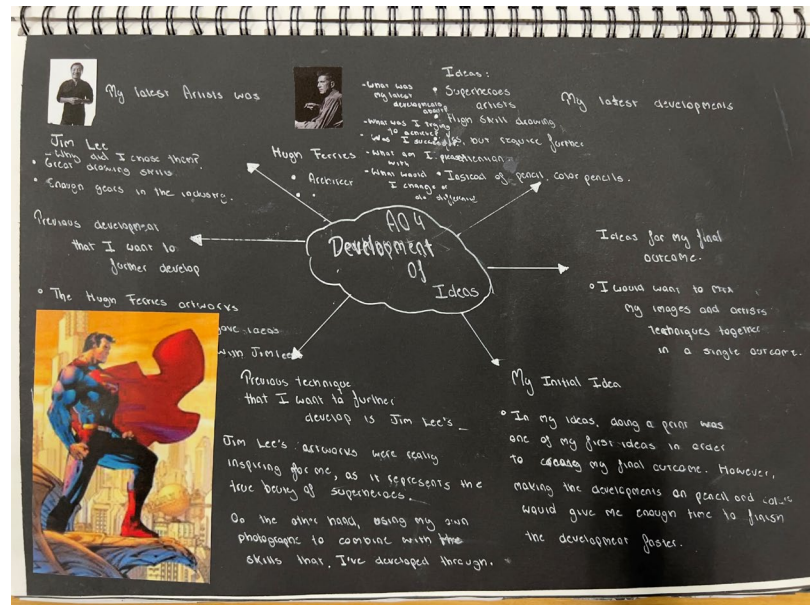 My latest Artists was
Jim Lee
- Why did I chose them?
• Great drawing skills.
• Enough years in the industry.
Hugh Ferries
• Architect
Ideas:
• Superheroes
artists
• High skill drawing
but require further
• Instead of pencil, color pencils.
- What was
my latest
developments
about
- What was I trying
to achieve
- Was I successful
- What am I
with
- What would
I change or
do different
My latest developments
Previous development
that I want to
further develop
• The Hugh Ferries artworks
gave ideas
with Jim Lee
AO4
Development
Of
Ideas
Ideas for my final
outcome.
• I would want to mix
my images and artists
techniques together
in a single outcome.
Previous technique
that I want to further
develop is Jim Lee's
Jim Lee's artworks were really
inspiring for me, as it represents the
true beuty of superheroes.
On the other hand, using my own
photographs to combine with the
skills that, I've developed through.
My Initial Idea
• In my ideas, doing a print was
one of my first ideas in order
to my final outcome. However,
making the developments on pencil and
would give me enough time to finish
the development faster.